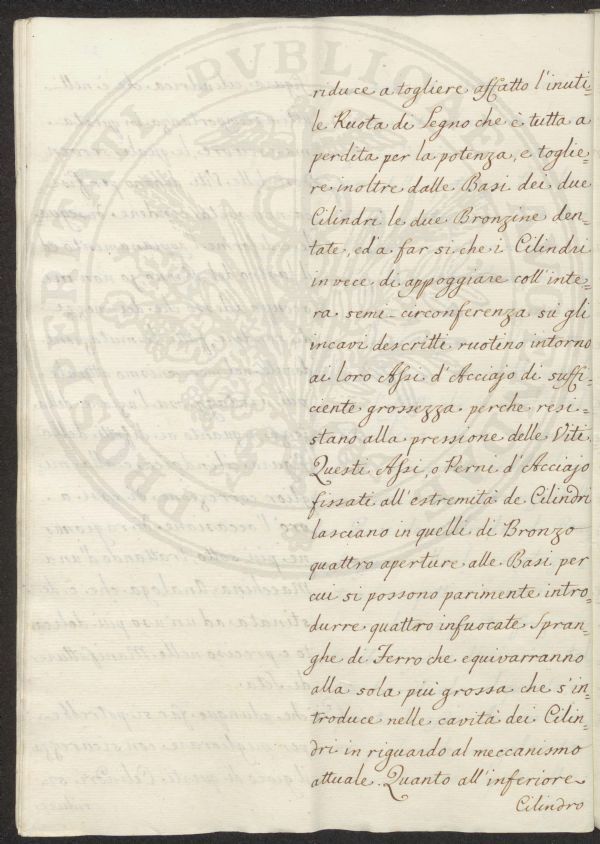 riduce a togliere affatto l'inuti=
le Ruota di Legno che è tutta a
perdita per la potenza, e toglie=
re inoltre dalle Basi dei due
Cilindri le due Bronzine den=
tate, ed a far si che i Cilindri
in vece di appoggiare coll'inte=
ra semi-circonferenza su gli
incavi descritti ruotino intorno
ai loro Assi d'Acciajo di suffi=
ciente grossezza perche resi=
stano alla pressione delle Viti.
Questi Assi, o Perni d'Acciajo
fissati all'estremità de Cilindri
lasciano in quelli di Bronzo
quattro aperture alle Basi per
cui si possono parimente intro=
durre quattro infuocate Spran=
ghe di Ferro che equivarranno
alla sola più grossa che s'in=
troduce nelle cavità dei Cilin=
dri in riguardo al meccanismo
attuale. Quanto all'inferiore
Cilindro